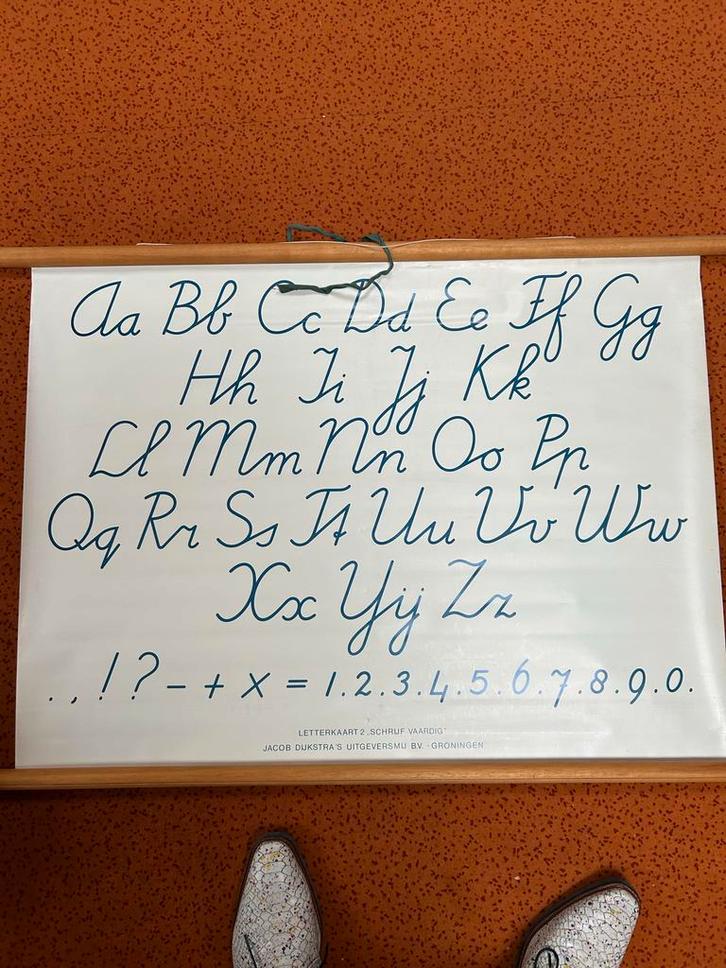 Aa Bb Cc Dd Ee Ff Gg
Hh Ii Jj Kk
Ll Mm Nn Oo Pp
Qq Rr Ss Tt Uu Vv Ww
Xx Yij Zz
. , ! ? - + x = 1.2.3.4.5.6.7.8.9.0.
LETTERKAART 2 „SCHRIJF VAARDIG"
JACOB DIJKSTRA'S UITGEVERSMIJ B.V. - GRONINGEN